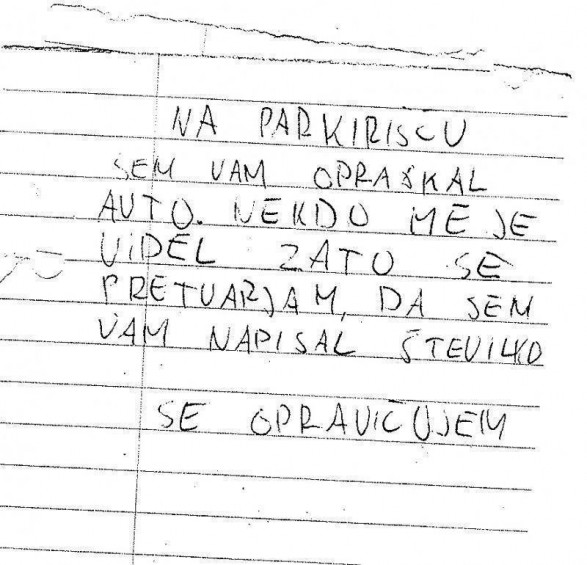 NA PARKIRIŠČU
SEM VAM OPRASKAL
AVTO. NEKDO ME JE
VIDEL ZATO SE
PRETVARJAM, DA SEM
VAM NAPISAL ŠTEVILKO
SE OPRAVIČUJEM